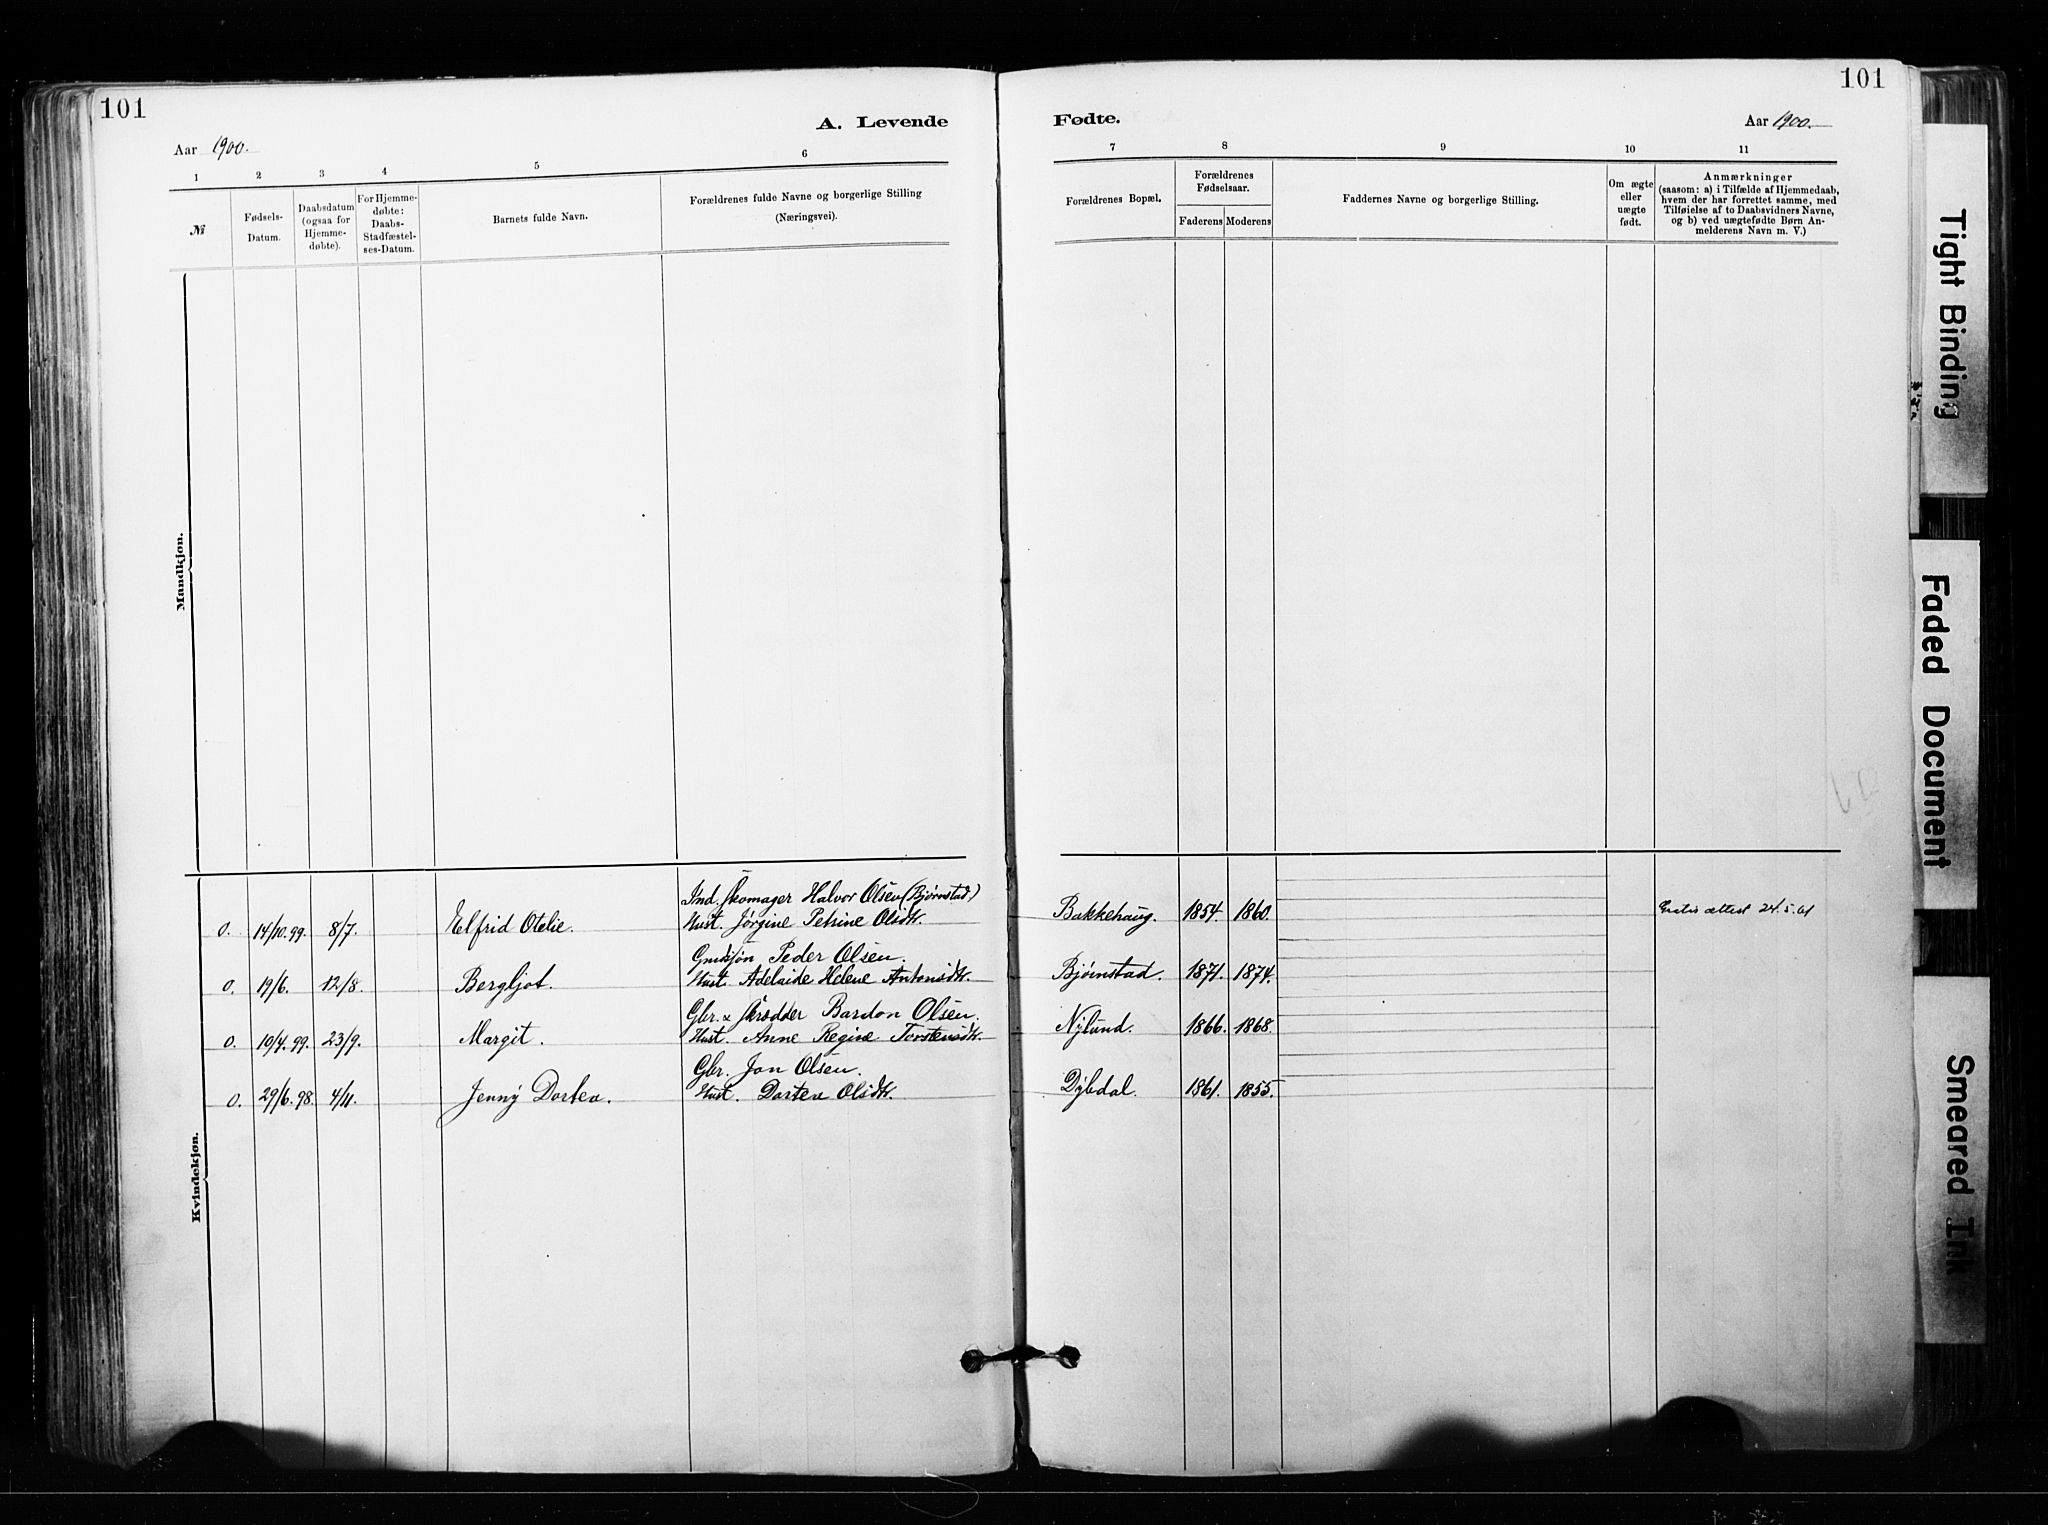 101
A. Levende
Aar 1900.
1 2 3 4 5 6
№
Fødsels-Datum.
Daabsdatum (ogsaa for Hjemmedøbte).
For Hjemmedøbte: Daabs-Stadfæstelses-Datum.
Barnets fulde Navn.
Forældrenes fulde Navne og borgerlige Stilling
(Næringsvei).
Mandkjøn.
Kvindekjøn.
Ind. Skomager Halvor Olsen (Bjørnstad)
0. 14/10.99. 8/7. Elfrid Otelie. Hust. Jørgine Petrine Olsdtr.
Peder Olsen.
0. 19/6. 12/8. Bergljot. Hust. Adelaide Helene Antonsdtr.
Gbr. & Skrædder Bardon Olsen.
0. 10/4.99. 23/9. Margit. Hust. Anne Regine Torstensdtr.
Gbr. Jon Olsen.
0. 29/6.98. 4/11. Jenny Dortea. Hust. Dortea Olsdtr.
101
Fødte.
Aar 1900.
7 8 9 10 11
Forældrenes Bopæl.
Forældrenes Fødselsaar.
Faderens Moderens
Faddernes Navne og borgerlige Stilling.
Om ægte eller uægte født.
Anmærkninger
(saasom: a) i Tilfælde af Hjemmedaab,
hvem der har forrettet samme, med
Tilføielse af to Daabsvidners Navne,
og b) ved uægtefødte Børn An-
melderens Navn m. V.)
Bakkehaug. 1854. 1860. Gratis attest 24.5.61
Bjørnstad. 1871. 1874.
Nylund. 1866. 1868.
Dybdal. 1861. 1855.
Tight Binding
Faded Document
Smeared Ink